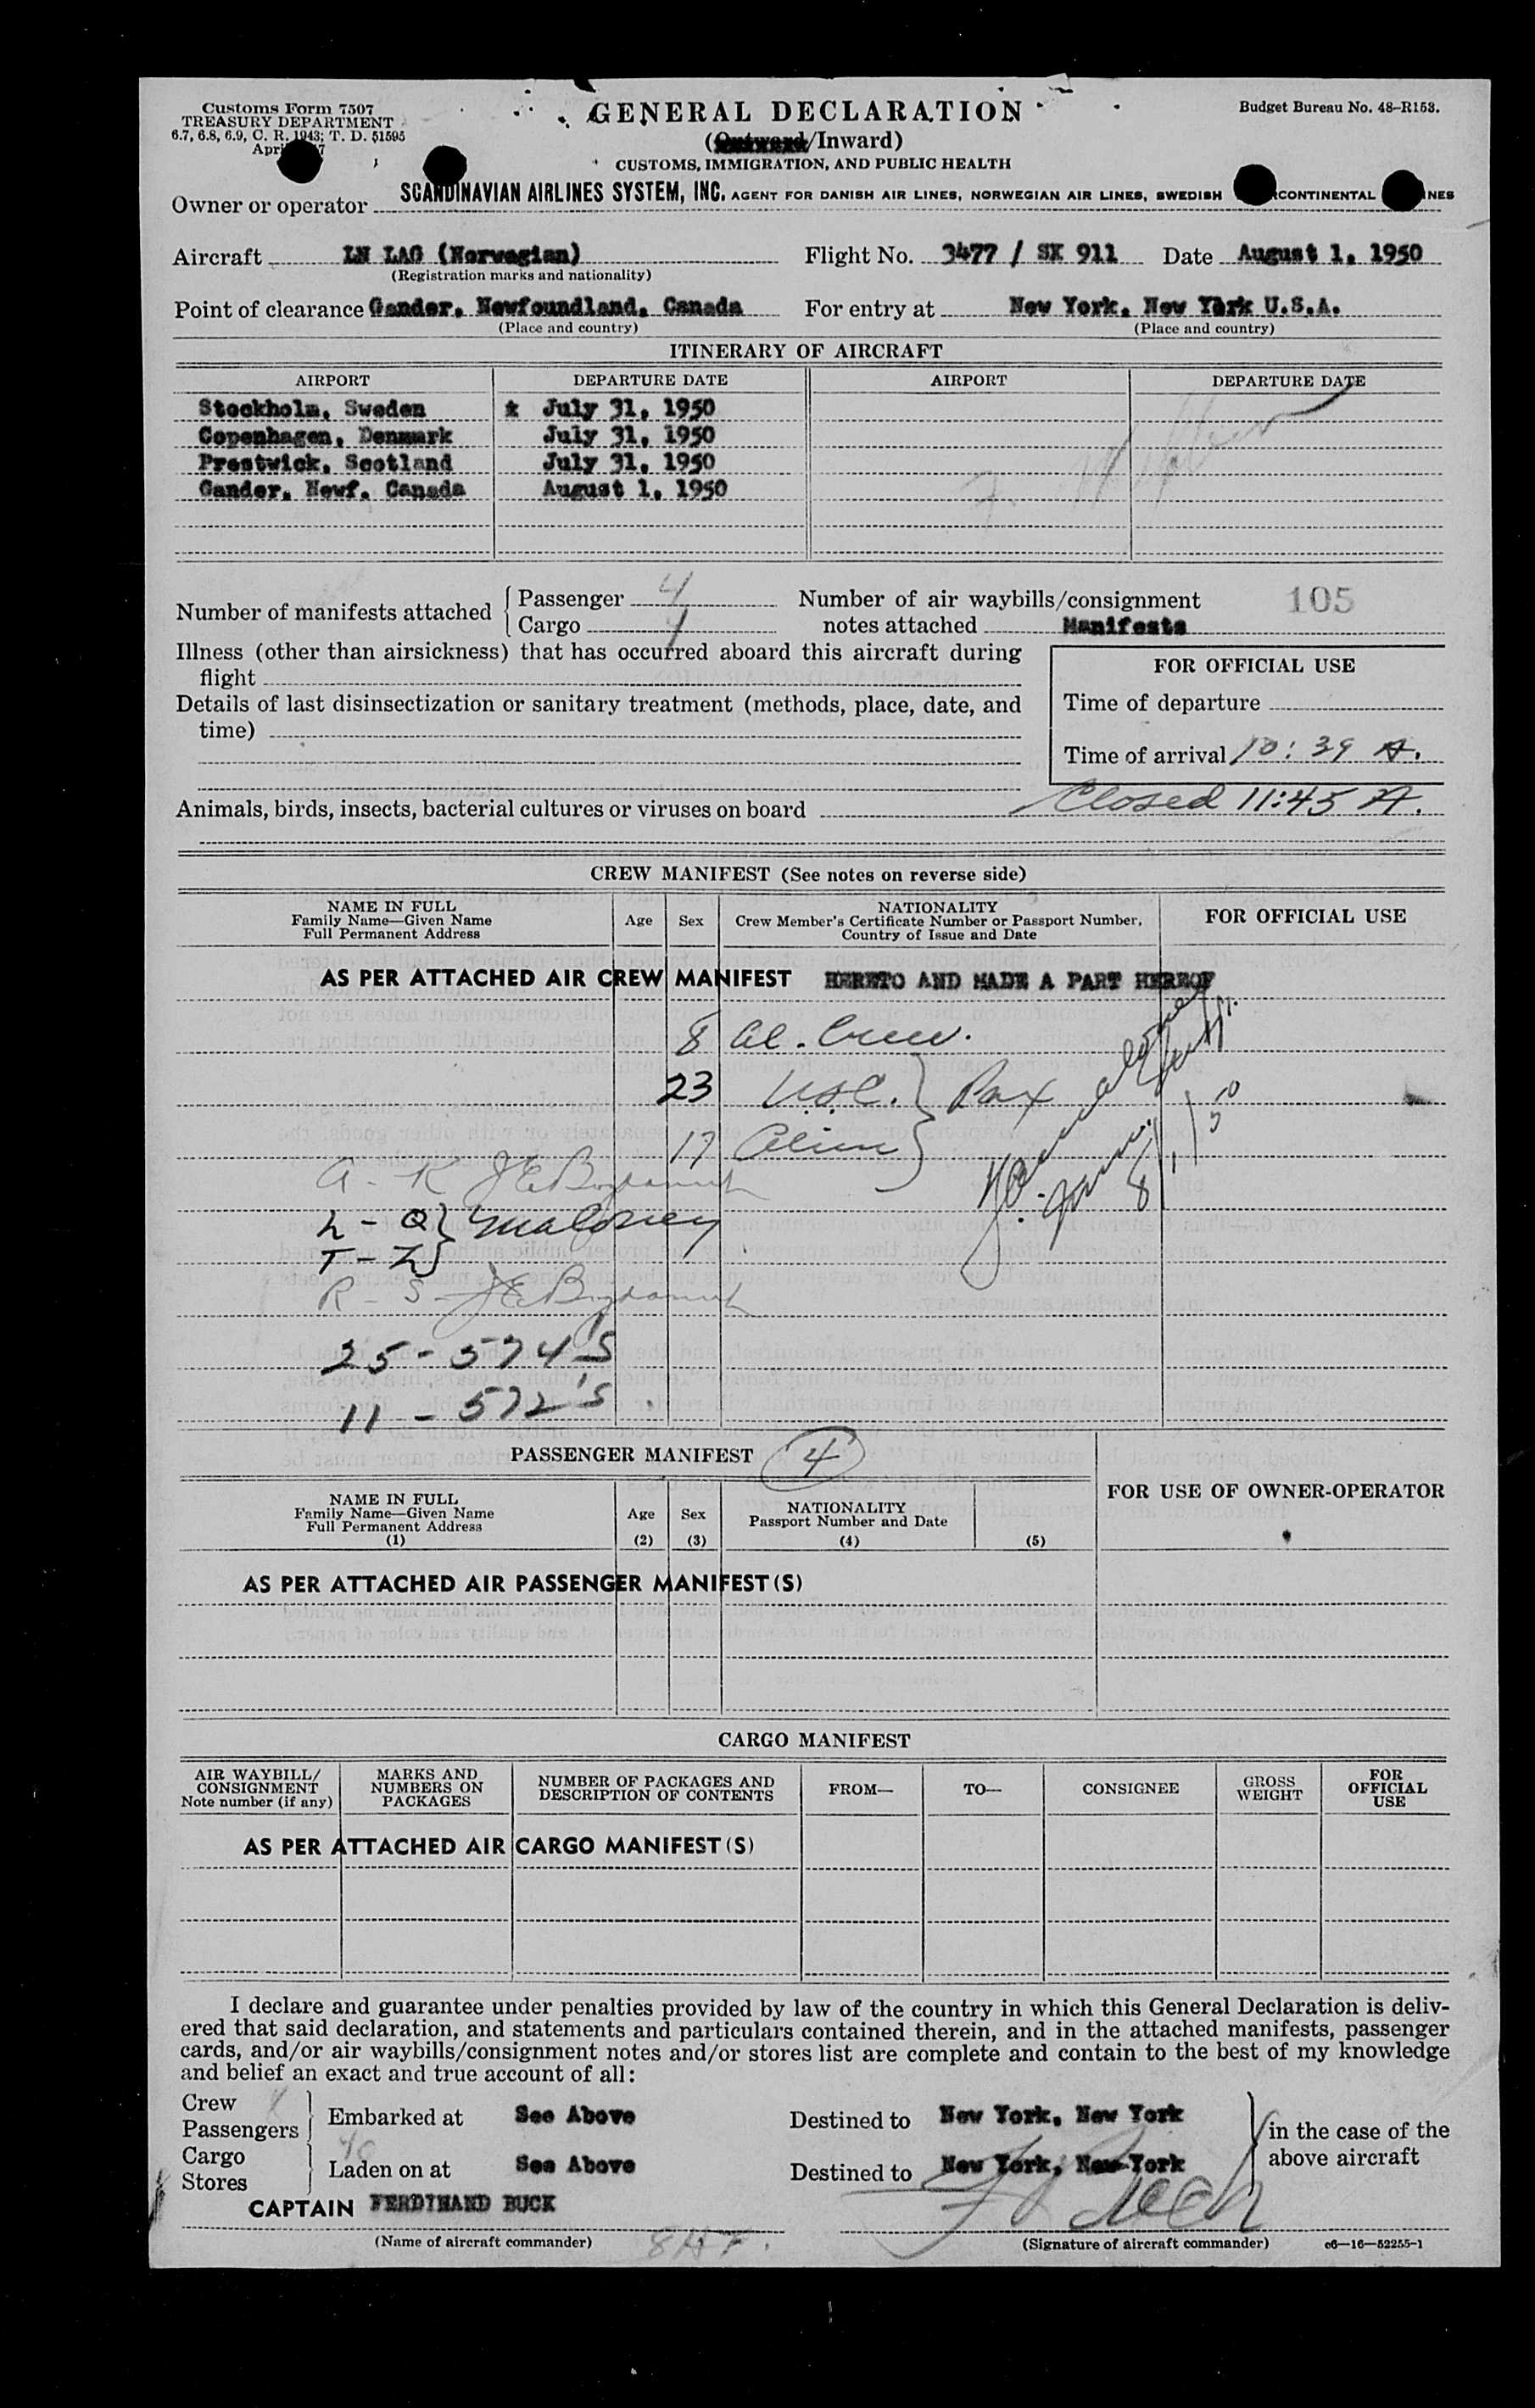 Customs Form 7507
TREASURY DEPARTMENT
6.7, 6.8, 6.9, C. R. 1943; T. D. 51595
GENERAL DECLARATION
(Outward/Inward)
CUSTOMS, IMMIGRATION, AND PUBLIC HEALTH
Budget Bureau No. 48–R153.
Owner or operator SCANDINAVIAN AIRLINES SYSTEM, INC. AGENT FOR DANISH AIR LINES, NORWEGIAN AIR LINES, SWEDISH
Aircraft LN LAG (Norwegian) Flight No. 3477 / SK 911 Date August 1, 1950
(Registration marks and nationality)
Point of clearance Gander, Newfoundland, Canada For entry at New York, New York U.S.A.
(Place and country) (Place and country)
ITINERARY OF AIRCRAFT
AIRPORT DEPARTURE DATE AIRPORT DEPARTURE DATE
Stockholm, Sweden * July 31, 1950
Copenhagen, Denmark July 31, 1950
Prestwick, Scotland July 31, 1950
Gander, Newf. Canada August 1, 1950
Number of manifests attached { Passenger 4
Cargo 4
Number of air waybills/consignment
notes attached Manifests
105
Illness (other than airsickness) that has occurred aboard this aircraft during
flight
Details of last disinsectization or sanitary treatment (methods, place, date, and
time)
FOR OFFICIAL USE
Time of departure
Time of arrival 10:39 A.
Closed 11:45 A.
Animals, birds, insects, bacterial cultures or viruses on board
CREW MANIFEST (See notes on reverse side)
NAME IN FULL
Family Name—Given Name
Full Permanent Address
Age
Sex
NATIONALITY
Crew Member's Certificate Number or Passport Number,
Country of Issue and Date
FOR OFFICIAL USE
AS PER ATTACHED AIR CREW MANIFEST HERETO AND MADE A PART HEREOF
8 al. Crew.
23 U.S.C. } Pax
17 Alien
A - K
L - Q } Maloney
T - Z
R - S
25 - 574's
11 - 572's
PASSENGER MANIFEST 4
NAME IN FULL
Family Name—Given Name
Full Permanent Address
(1)
Age
(2)
Sex
(3)
NATIONALITY
Passport Number and Date
(4)
(5)
FOR USE OF OWNER-OPERATOR
AS PER ATTACHED AIR PASSENGER MANIFEST(S)
CARGO MANIFEST
AIR WAYBILL/
CONSIGNMENT
Note number (if any)
MARKS AND
NUMBERS ON
PACKAGES
NUMBER OF PACKAGES AND
DESCRIPTION OF CONTENTS
FROM—
TO—
CONSIGNEE
GROSS
WEIGHT
FOR
OFFICIAL
USE
AS PER ATTACHED AIR CARGO MANIFEST(S)
I declare and guarantee under penalties provided by law of the country in which this General Declaration is deliv-
ered that said declaration, and statements and particulars contained therein, and in the attached manifests, passenger
cards, and/or air waybills/consignment notes and/or stores list are complete and contain to the best of my knowledge
and belief an exact and true account of all:
Crew
Passengers } Embarked at See Above Destined to New York, New York
Cargo
Stores } Laden on at See Above Destined to New York, New York
in the case of the
above aircraft
CAPTAIN FERDINAND BUCK
(Name of aircraft commander) (Signature of aircraft commander) c6—16—52255-1